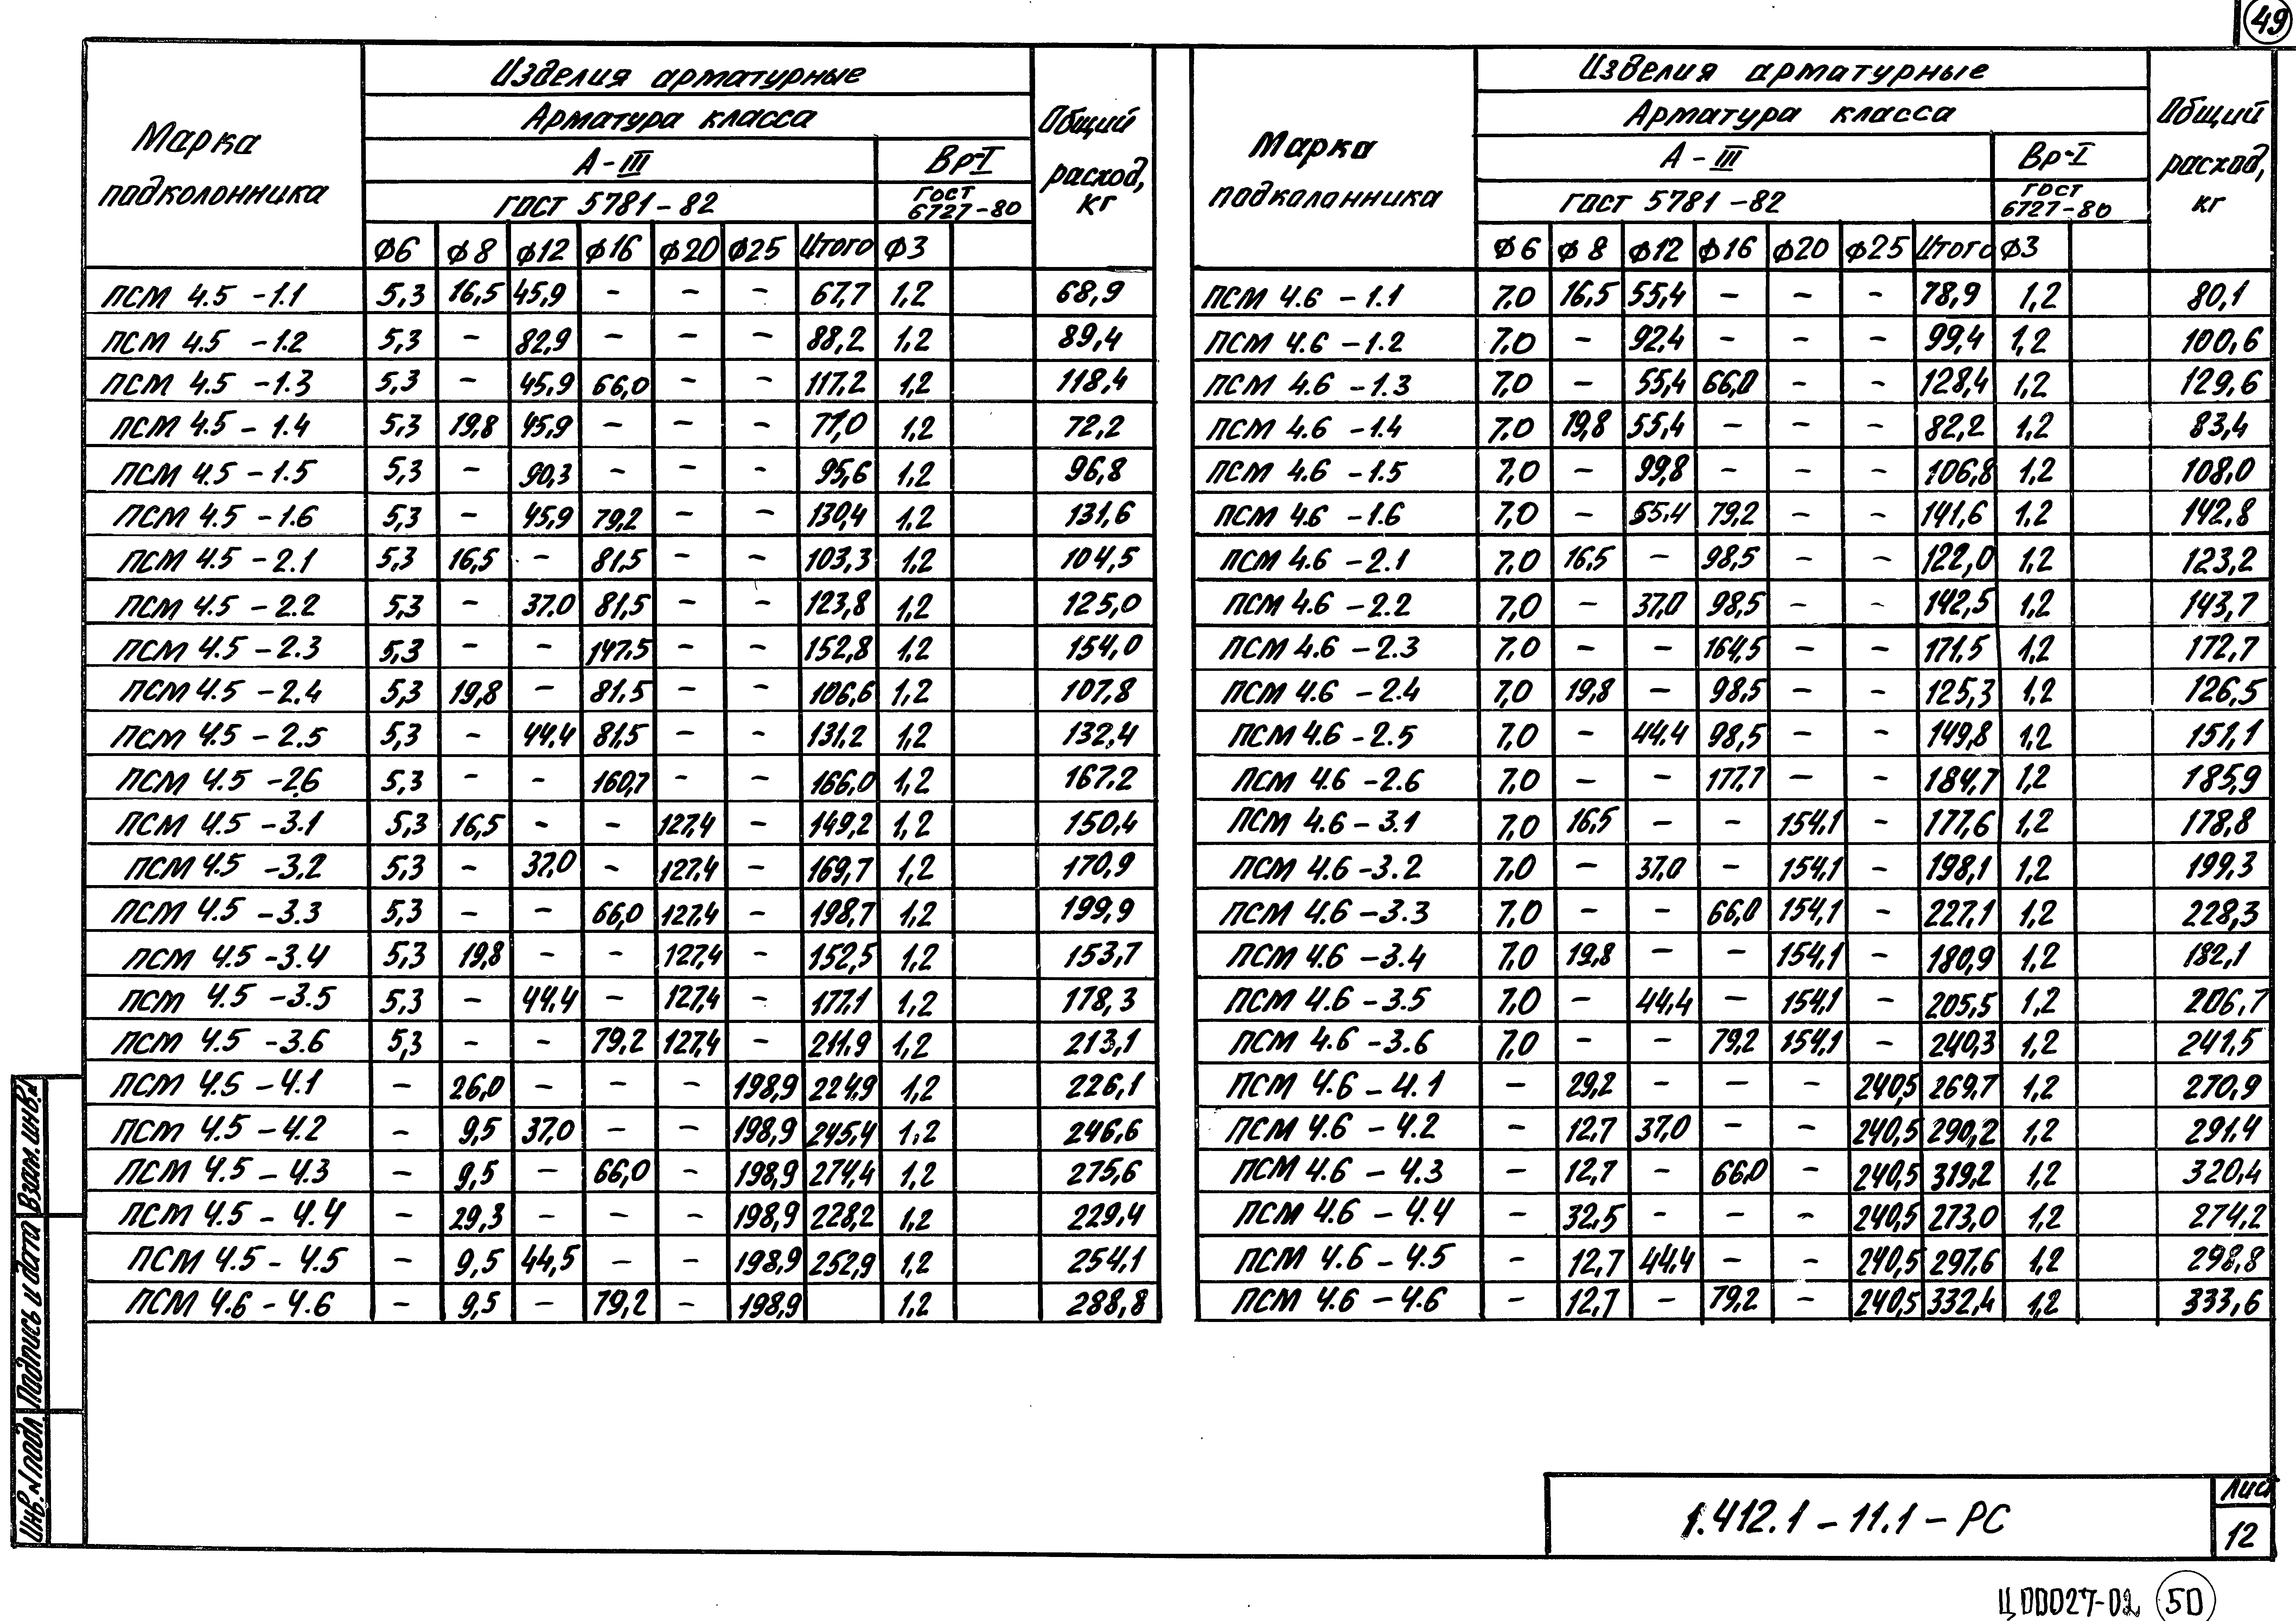 49
Марка подколонника | Изделия арматурные | Общий расход, кг
Арматура класса
А-III | Вр-I
ГОСТ 5781-82 | ГОСТ 6727-80
ф6 | ф8 | ф12 | ф16 | ф20 | ф25 | Итого | ф3
ПСМ 4.5 -1.1 | 5,3 | 16,5 | 45,9 | - | - | - | 67,7 | 1,2 | 68,9
ПСМ 4.5 -1.2 | 5,3 | - | 82,9 | - | - | - | 88,2 | 1,2 | 89,4
ПСМ 4.5 -1.3 | 5,3 | - | 45,9 | 66,0 | - | - | 117,2 | 1,2 | 118,4
ПСМ 4.5 -1.4 | 5,3 | 19,8 | 45,9 | - | - | - | 71,0 | 1,2 | 72,2
ПСМ 4.5 -1.5 | 5,3 | - | 90,3 | - | - | - | 95,6 | 1,2 | 96,8
ПСМ 4.5 -1.6 | 5,3 | - | 45,9 | 79,2 | - | - | 130,4 | 1,2 | 131,6
ПСМ 4.5 -2.1 | 5,3 | 16,5 | - | 81,5 | - | - | 103,3 | 1,2 | 104,5
ПСМ 4.5 -2.2 | 5,3 | - | 37,0 | 81,5 | - | - | 123,8 | 1,2 | 125,0
ПСМ 4.5 -2.3 | 5,3 | - | - | 147,5 | - | - | 152,8 | 1,2 | 154,0
ПСМ 4.5 -2.4 | 5,3 | 19,8 | - | 81,5 | - | - | 106,6 | 1,2 | 107,8
ПСМ 4.5 -2.5 | 5,3 | - | 44,4 | 81,5 | - | - | 131,2 | 1,2 | 132,4
ПСМ 4.5 -2.6 | 5,3 | - | - | 160,7 | - | - | 166,0 | 1,2 | 167,2
ПСМ 4.5 -3.1 | 5,3 | 16,5 | - | - | 127,4 | - | 149,2 | 1,2 | 150,4
ПСМ 4.5 -3.2 | 5,3 | - | 37,0 | - | 127,4 | - | 169,7 | 1,2 | 170,9
ПСМ 4.5 -3.3 | 5,3 | - | - | 66,0 | 127,4 | - | 198,7 | 1,2 | 199,9
ПСМ 4.5 -3.4 | 5,3 | 19,8 | - | - | 127,4 | - | 152,5 | 1,2 | 153,7
ПСМ 4.5 -3.5 | 5,3 | - | 44,4 | - | 127,4 | - | 177,1 | 1,2 | 178,3
ПСМ 4.5 -3.6 | 5,3 | - | - | 79,2 | 127,4 | - | 211,9 | 1,2 | 213,1
ПСМ 4.5 -4.1 | - | 26,0 | - | - | - | 198,9 | 224,9 | 1,2 | 226,1
ПСМ 4.5 -4.2 | - | 9,5 | 37,0 | - | - | 198,9 | 245,4 | 1,2 | 246,6
ПСМ 4.5 -4.3 | - | 9,5 | - | 66,0 | - | 198,9 | 274,4 | 1,2 | 275,6
ПСМ 4.5 -4.4 | - | 29,3 | - | - | - | 198,9 | 228,2 | 1,2 | 229,4
ПСМ 4.5 -4.5 | - | 9,5 | 44,5 | - | - | 198,9 | 252,9 | 1,2 | 254,1
ПСМ 4.6 -4.6 | - | 9,5 | - | 79,2 | - | 198,9 | | 1,2 | 288,8
Марка подколонника | Изделия арматурные | Общий расход, кг
Арматура класса
А-III | Вр-I
ГОСТ 5781-82 | ГОСТ 6727-80
ф6 | ф8 | ф12 | ф16 | ф20 | ф25 | Итого | ф3
ПСМ 4.6 -1.1 | 7,0 | 16,5 | 55,4 | - | - | - | 78,9 | 1,2 | 80,1
ПСМ 4.6 -1.2 | 7,0 | - | 92,4 | - | - | - | 99,4 | 1,2 | 100,6
ПСМ 4.6 -1.3 | 7,0 | - | 55,4 | 66,0 | - | - | 128,4 | 1,2 | 129,6
ПСМ 4.6 -1.4 | 7,0 | 19,8 | 55,4 | - | - | - | 82,2 | 1,2 | 83,4
ПСМ 4.6 -1.5 | 7,0 | - | 99,8 | - | - | - | 106,8 | 1,2 | 108,0
ПСМ 4.6 -1.6 | 7,0 | - | 55,4 | 79,2 | - | - | 141,6 | 1,2 | 142,8
ПСМ 4.6 -2.1 | 7,0 | 16,5 | - | 98,5 | - | - | 122,0 | 1,2 | 123,2
ПСМ 4.6 -2.2 | 7,0 | - | 37,0 | 98,5 | - | - | 142,5 | 1,2 | 143,7
ПСМ 4.6 -2.3 | 7,0 | - | - | 164,5 | - | - | 171,5 | 1,2 | 172,7
ПСМ 4.6 -2.4 | 7,0 | 19,8 | - | 98,5 | - | - | 125,3 | 1,2 | 126,5
ПСМ 4.6 -2.5 | 7,0 | - | 44,4 | 98,5 | - | - | 149,8 | 1,2 | 151,1
ПСМ 4.6 -2.6 | 7,0 | - | - | 177,7 | - | - | 184,7 | 1,2 | 185,9
ПСМ 4.6 -3.1 | 7,0 | 16,5 | - | - | 154,1 | - | 177,6 | 1,2 | 178,8
ПСМ 4.6 -3.2 | 7,0 | - | 37,0 | - | 154,1 | - | 198,1 | 1,2 | 199,3
ПСМ 4.6 -3.3 | 7,0 | - | - | 66,0 | 154,1 | - | 227,1 | 1,2 | 228,3
ПСМ 4.6 -3.4 | 7,0 | 19,8 | - | - | 154,1 | - | 180,9 | 1,2 | 182,1
ПСМ 4.6 -3.5 | 7,0 | - | 44,4 | - | 154,1 | - | 205,5 | 1,2 | 206,7
ПСМ 4.6 -3.6 | 7,0 | - | - | 79,2 | 154,1 | - | 240,3 | 1,2 | 241,5
ПСМ 4.6 -4.1 | - | 29,2 | - | - | - | 240,5 | 269,7 | 1,2 | 270,9
ПСМ 4.6 -4.2 | - | 12,7 | 37,0 | - | - | 240,5 | 290,2 | 1,2 | 291,4
ПСМ 4.6 -4.3 | - | 12,7 | - | 66,0 | - | 240,5 | 319,2 | 1,2 | 320,4
ПСМ 4.6 -4.4 | - | 32,5 | - | - | - | 240,5 | 273,0 | 1,2 | 274,2
ПСМ 4.6 -4.5 | - | 12,7 | 44,4 | - | - | 240,5 | 297,6 | 1,2 | 298,8
ПСМ 4.6 -4.6 | - | 12,7 | - | 79,2 | - | 240,5 | 332,4 | 1,2 | 333,6
Взам. инв.№
Подпись и дата
Инв.№подл.
1.412.1-11.1-РС
Лист
12
Ц00027-02 50